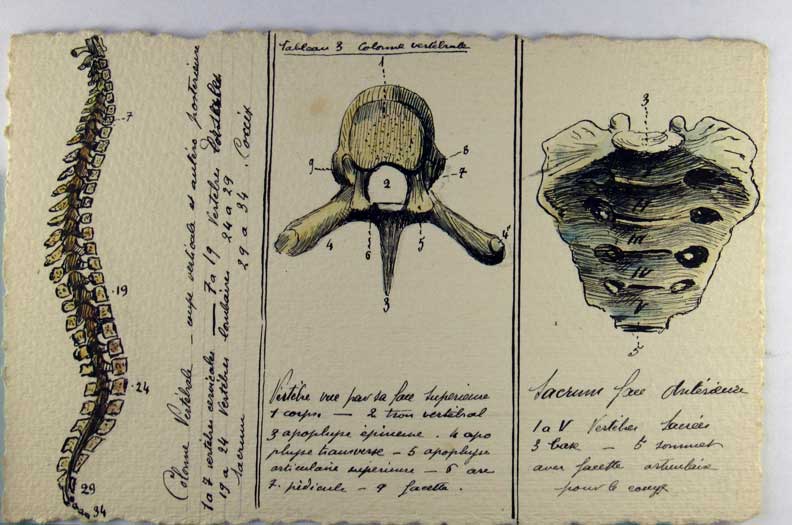 7
19
24
29
34
Colonne Vertébrale – coupe verticale et antéro postérieure
1 a 7 vertèbres cervicales — 7 a 19 Vertèbres Dorsales
19 a 24 Vertèbres lombaires 24 a 29
Sacrum 29 a 34 Coccix
Tableau 3 Colonne vertébrale
1
9
8
7
2
4
6
5
4
3
Vertèbre vue par sa face Supérieure
1 corps — 2 trou vertébral
3 apophyse épineuse . 4 apo
physe transverse – 5 apophyse
articulaire supérieure – 6 arc
7. pédicule – 9 facette .
3
I
II
III
IV
V
5
Sacrum face Antérieure
1 a V Vertèbres Sacrées
3 base – 5 sommet
avec facette articulaire
pour le